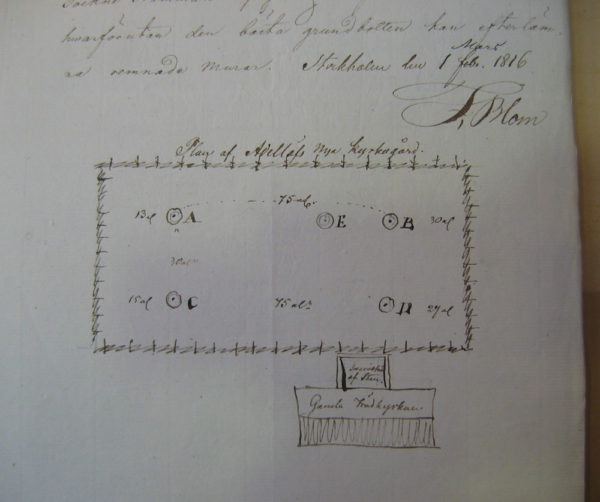 hwarförutan den bästa grundbotten kan efterläm-
na remnade murar. Stockholm den 1 Mars febr. 1816
F. Blom
Plan af Nya Kyrkogård.
75 al.
13 al A E B 30 al
30 al
15 al C 75 al D 27 al
af Sten
Gamla Trädkyrkan.